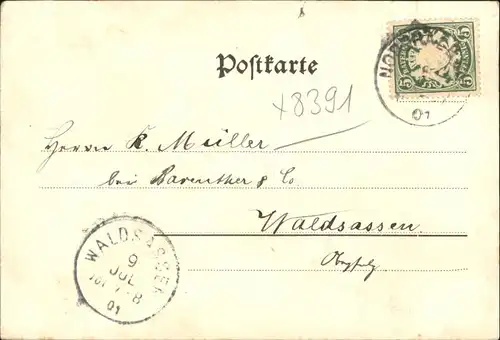 Postkarte
x8391
Herrn K. Müller
bei Bareuther & Co
Waldsassen.
Obpfalz
WALDSASSEN
9
JUL
7-8
01
5 5
01